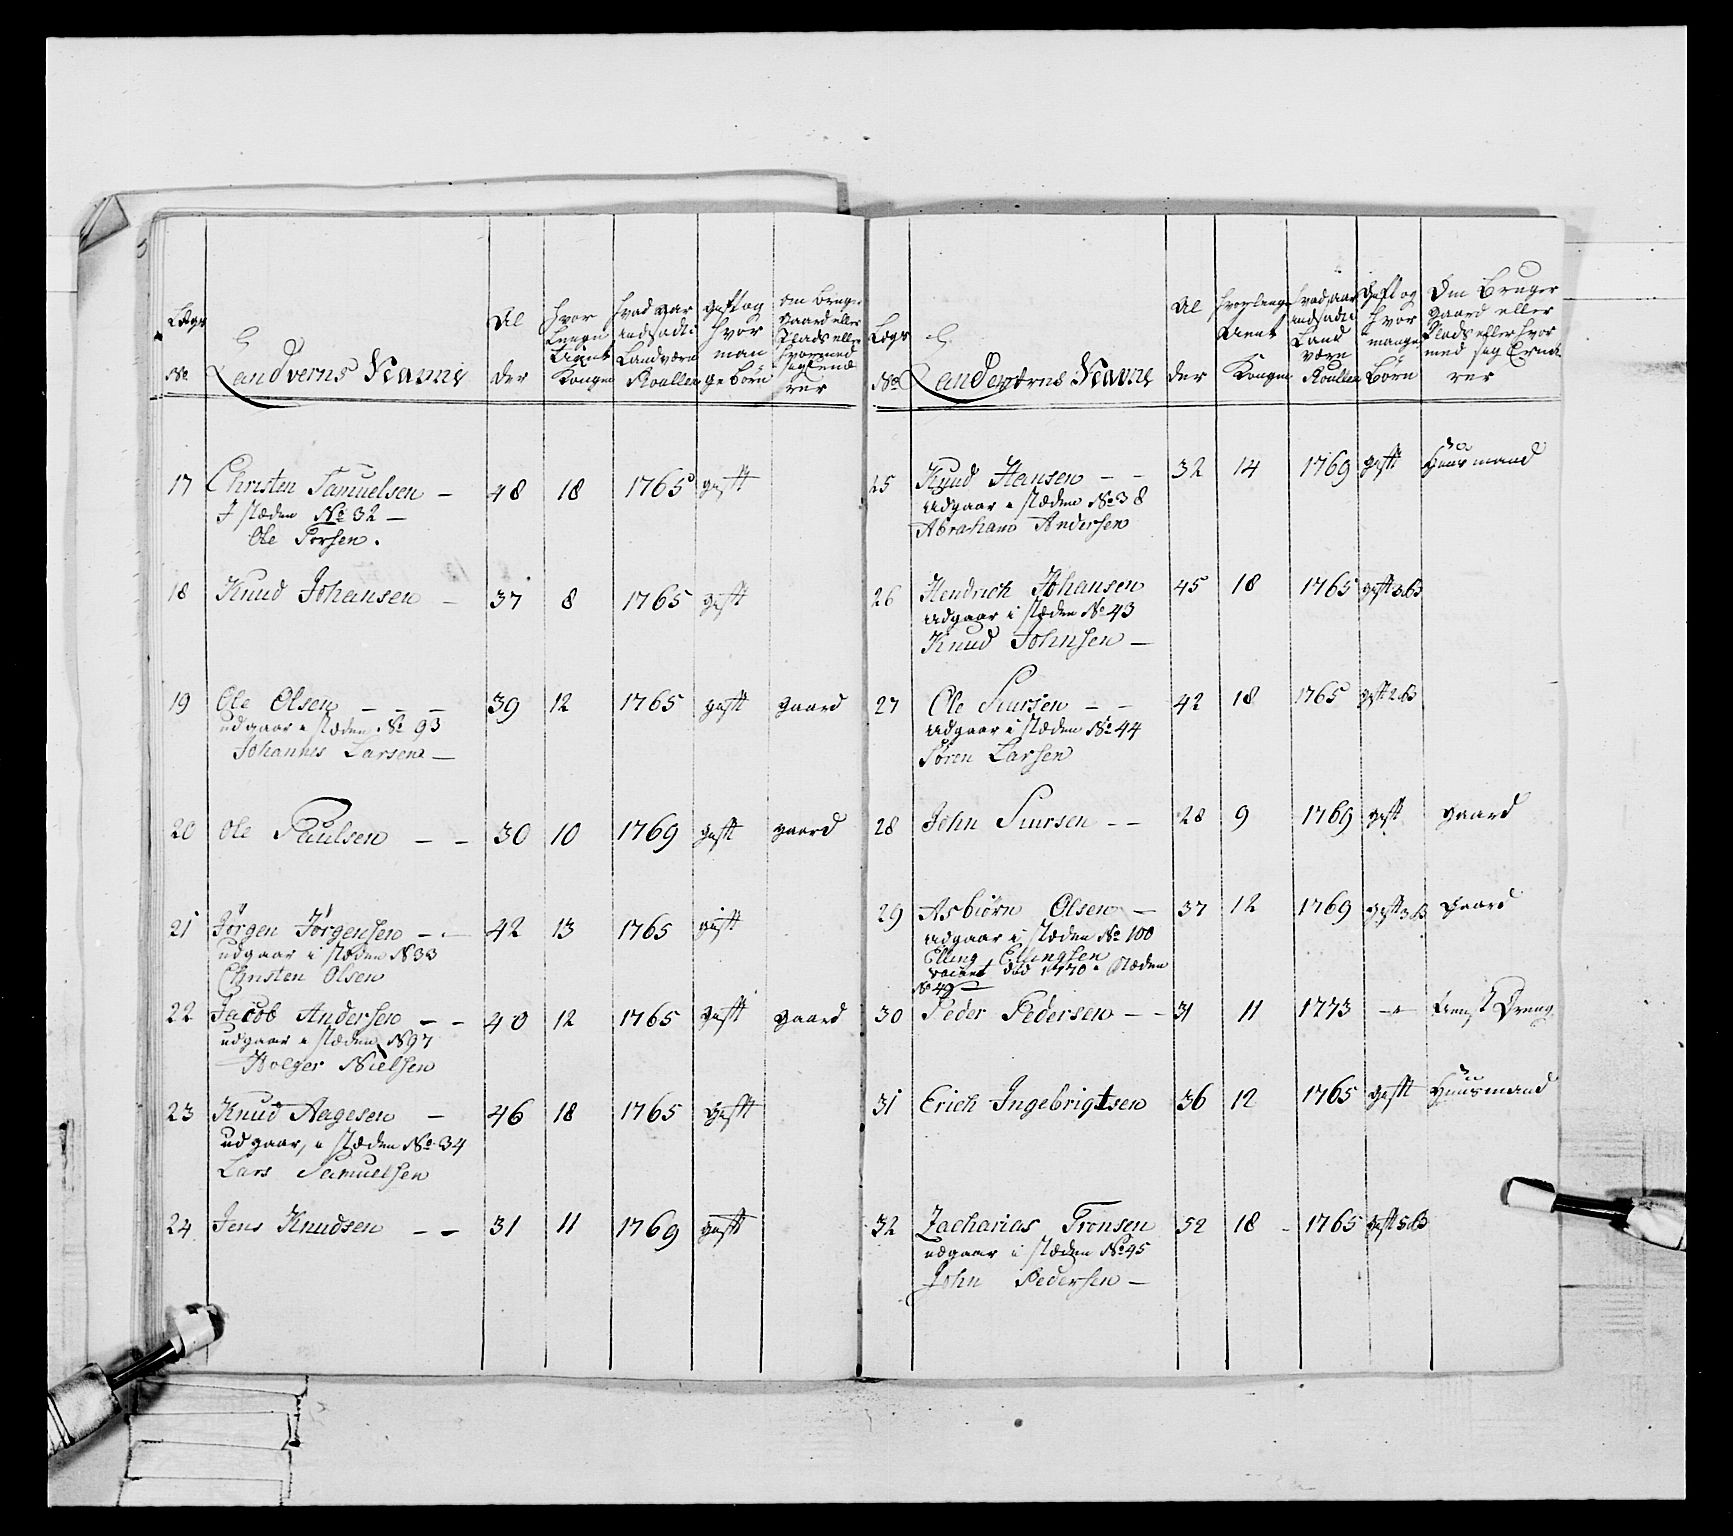 Lægs
No
Landverns Navne
Al
der
hvor
længe
tient
Kongen
hvad aar
indsadt i
Landværn
Roullen
gift og
hvor
man
ge børn
om bruger
gaard eller
Plads eller
hvormed
sig ernæ
rer
17 Christen Samuelsen — 48 18 1765 gift
I stæden No 32 —
Ole Persen.
18 Knud Johansen — 37 8 1765 gift
19 Ole Olsen — — — 39 12 1765 gift gaard
udgaar i stæden No 93
Johannes Larsen —
20 Ole Paulsen — — 30 10 1769 gift gaard
21 Jørgen Jørgensen — — 42 13 1765 gift
udgaar i stæden No 33
Christen Olsen
22 Jacob Andersen — — 40 12 1765 gift gaard
udgaar i stæden No 97
Holger Nielsen
23 Knud Aagesen — 46 18 1765 gift
udgaar, i stæden No 34
Lars Samuelsen
24 Jens Knudsen — — 31 11 1769 gift
Lægs
No
Landværns Navne
Al
der
hvor længe
tient
Kongen
hvad aar
indsadt i
Land
værn
Roullen
gift og
hvor
mange
Børn
Om Bruger
gaard eller
Plads eller hvor
med sig Ernæ
rer
25 Knud Hansen — — 32 14 1769 gift Huusmand
udgaar i stæden No 38
Abraham Andersen
26 Hendrich Johansen 45 18 1765 gift 3 b
udgaar i stæden No 43
Knud Johnsen —
27 Ole Siursen — — 42 18 1765 gift 2 b
udgaar i stæden No 44
Søren Larsen
28 John Siursen — — 28 9 1769 gift gaard
29 Asbiørn Olsen — 37 12 1769 gift 3 b gaard
udgaar i stæden No 100
Elling Ellingsen
død 1770 i stæden
No 49 —
30 Peder Pedersen — — 31 11 1773 — Tienst Dreng
31 Erich Ingebrigtsen 36 12 1765 gift Huusmand
32 Zacharias Tronsen 52 18 - 1765 gift 5 b
udgaar i stæden No 45
John Pedersen —